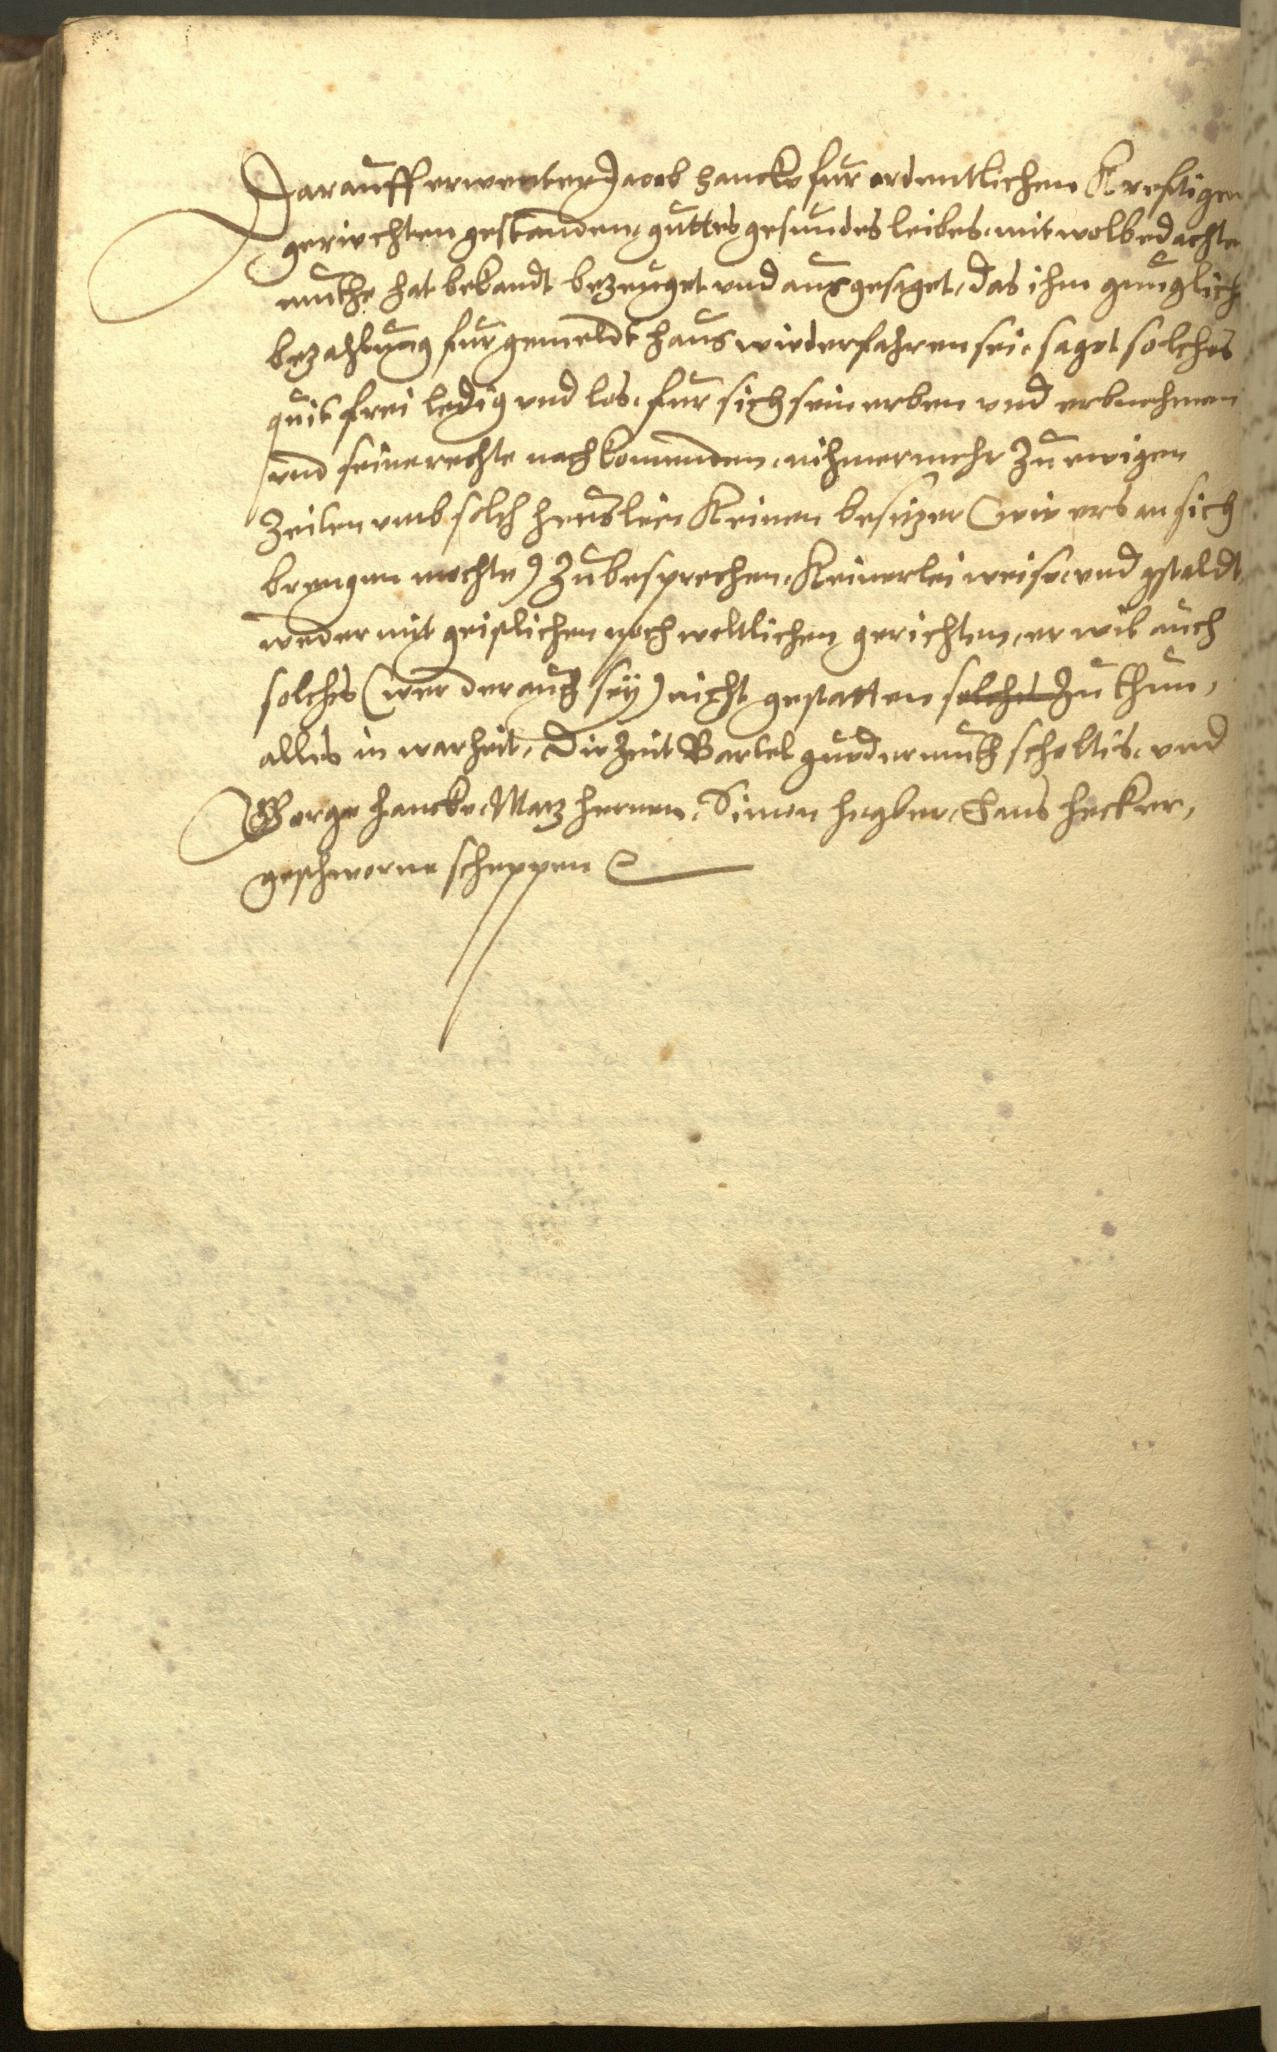 Darauff erwenter Jacob Hancke fur ordentlichen Krefftigen
geriechten gestanden, guttes gesundes leibes, mit wolbedachte
muthe hat bekandt bezeuget vnd ausgesaget, das ihm gnuglich
bezahlung fur gemeldt haus wiederfahren sei, saget solches
quit frei ledig vnd los, fur sich sein erben vnd erbnehmen
vnd seine rechte nachkommenden, nihmermehr zu ewigen
Zeiten vmb solch heuslein Keinen besitzer (wie ers an sich
brengen mochte) zubesprechen, Keinerlei weise, vnd gstaldt,
weder mit geistlichen noch weltlichen gerichten, er wil auch
solches (wer der auch sey) nicht gestatten solches zu thun,
alles in warheit, Die Zeit Bartel scholtis, vnd
George Hancke, Matz Simon Hans Hecker,
geschworne scheppen